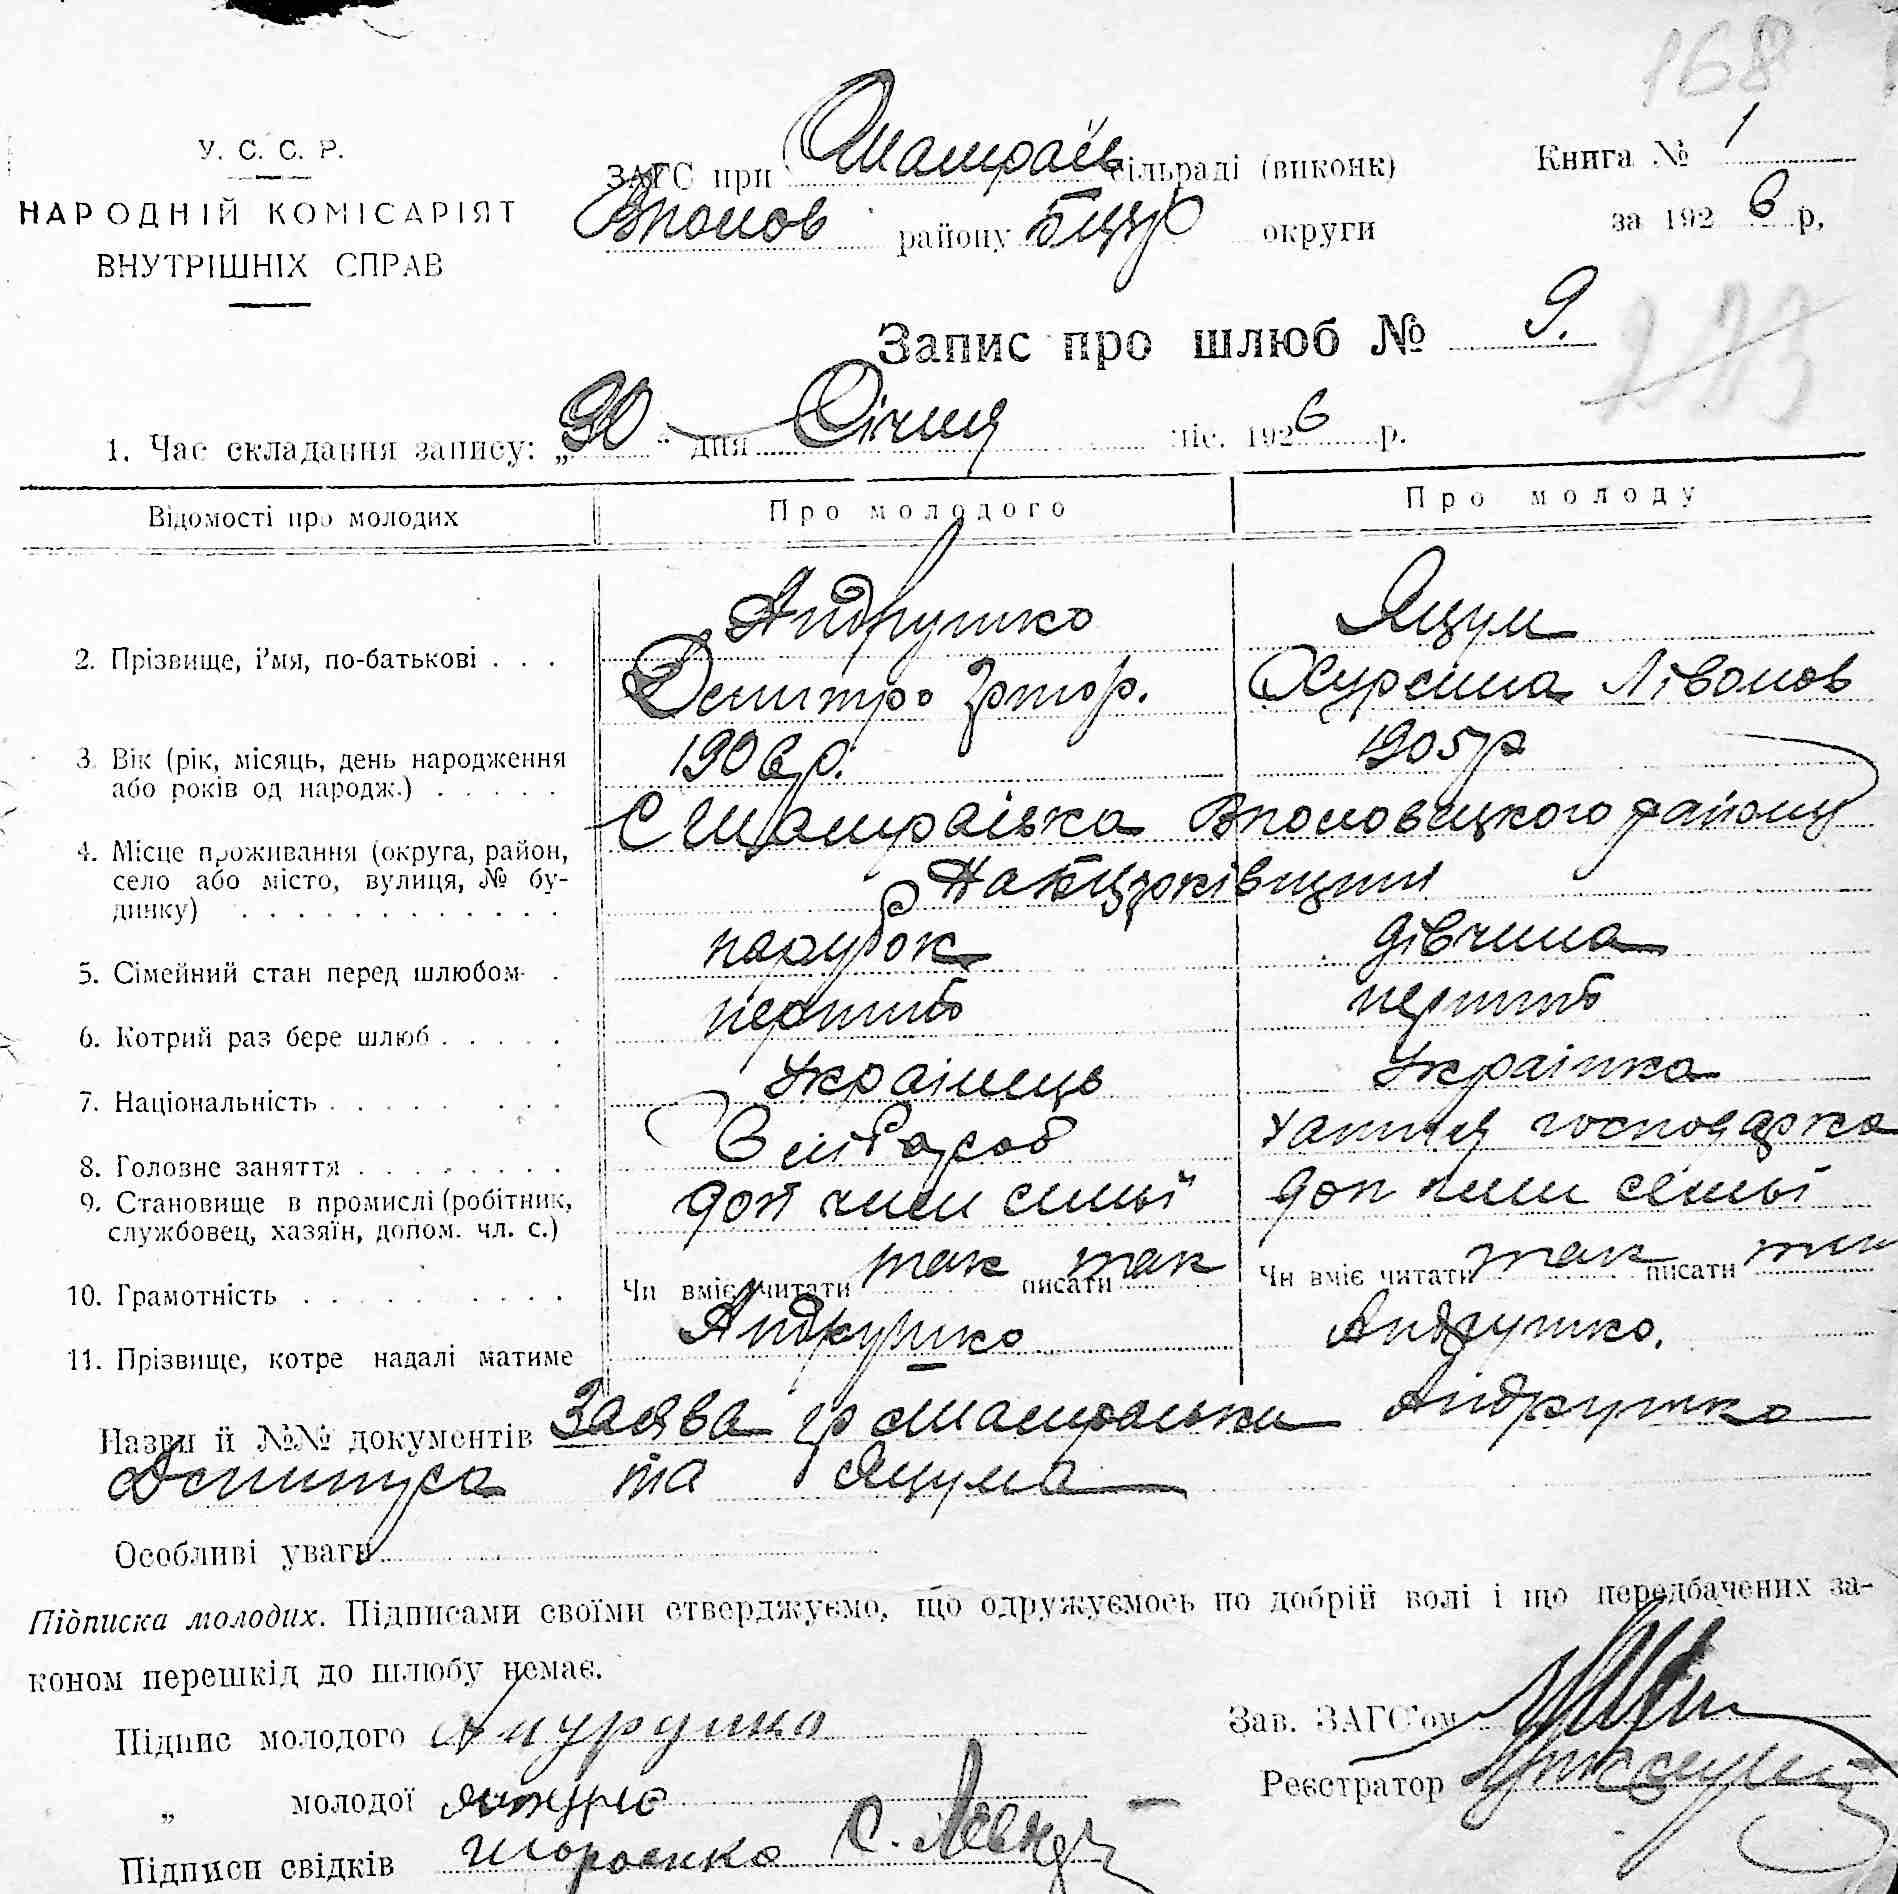 168
У. С. С. Р.
НАРОДНІЙ КОМІСАРІЯТ
ВНУТРІШНІХ СПРАВ
ЗАГС при Шамраїв сільраді (виконк)
району БЦер округи
Книга № 1
за 1926 р,
Запис про шлюб № 9.
1. Час складання запису: „30“ дня Січня міс. 1926 р.
Відомості про молодих
Про молодого
Про молоду
2. Прізвище, і'мя, по-батькові . . .
Андрушко
Дмитро
Яцум
Лівонов
3. Вік (рік, місяць, день народження
або років од народж.) . . . . .
1906 р.
1905 р
4. Місце проживання (округа, район,
село або місто, вулиця, № бу-
динку) . . . . . . . . . . . .
С Шамраівка району
на БЦерківщині
5. Сімейний стан перед шлюбом .
парубок
дівчина
6. Котрий раз бере шлюб . . . . .
перший
перший
7. Національність . . . . . . . .
Украінець
Украінка
8. Головне заняття . . . . . . . .
Хлібороб
хатня господарка
9. Становище в промислі (робітник,
службовец, хазяїн, допом. чл. с.)
доп член симьї
доп член семьї
10. Грамотність . . . . . . . . . .
Чи вміє читати так писати так
Чи вміє читати так писати так
11. Прізвище, котре надалі матиме
Андрушко
Андрушко.
Назви й №№ документів Заява гр Андрушко
та Яцума
Особливі уваги
Підписка молодих. Підписами своїми стверджуємо, що одружуємось по добрій волі і що передбачених за-
коном перешкід до шлюбу немає.
Підпис молодого Андрушко
„ молодої
Підписи свідків
Зав. ЗАГС'ом
Реєстратор